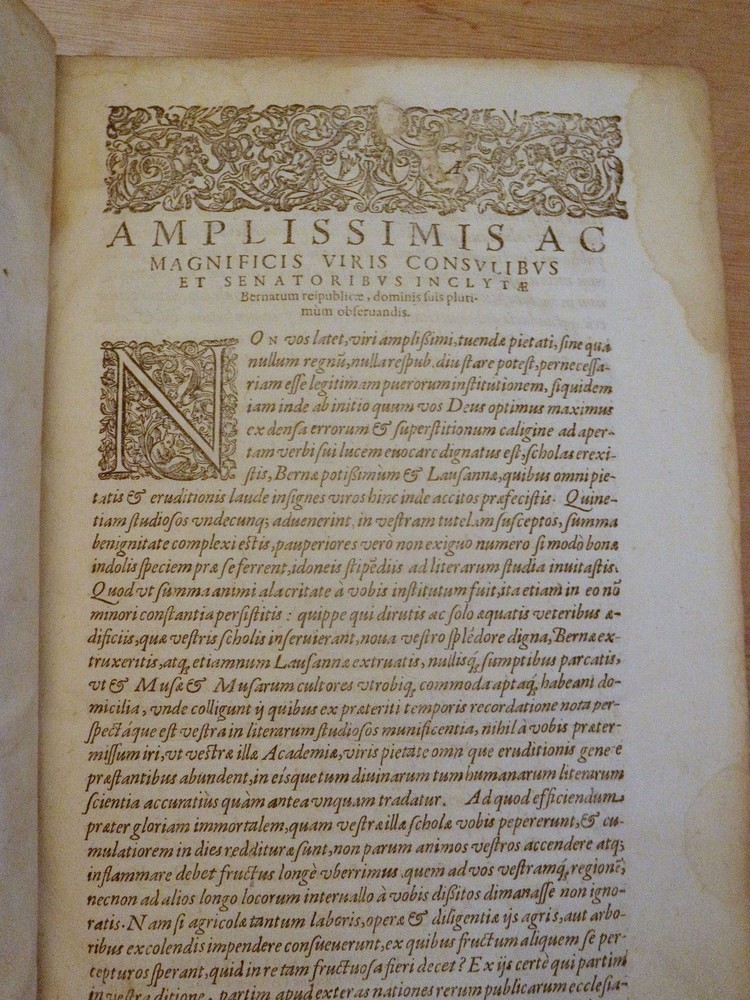 AMPLISSIMIS AC
MAGNIFICIS VIRIS CONSVLIBVS
ET SENATORIBVS INCLYTÆ
Bernatum reipublicæ, dominis suis pluri-
mùm obseruandis.
NON vos latet, viri amplißimi, tuendæ pietati, sine qua
nullum regnũ, nulla respub. diu stare potest, pernecessa-
riam esse legitimam puerorum institutionem, siquidem
iam inde ab initio quum vos Deus optimus maximus
ex densa errorum & superstitionum caligine ad aper-
tam verbi sui lucem euocare dignatus est, scholas erexi-
stis, Bernæ potißimùm & Lausannæ, quibus omni pie-
tatis & eruditionis laude insignes viros hinc inde accitos præfecistis. Quine-
tiam studiosos vndecunq; aduenerint, in vestram tutelam susceptos, summa
benignitate complexi estis, pauperiores verò non exiguo numero si modò bonæ
indolis speciem præ se ferrent, idoneis stipẽdiis ad literarum studia inuitastis.
Quod vt summa animi alacritate à vobis institutum fuit, ita etiam in eo nõ
minori constantia persistitis : quippe qui dirutis ac solo æquatis veteribus æ-
dificiis, quæ vestris scholis inseruierant, noua vestro splẽdore digna, Bernæ ex-
truxeritis, atq, etiamnum Lausannæ extruatis, nullisq, sumptibus parcatis,
vt & Musæ & Musarum cultores vtrobiq, commoda aptaq, habeant do-
micilia, vnde colligunt ij quibus ex præteriti temporis recordatione nota per-
spectáque est vestra in literarum studiosos munificentia, nihil à vobis præter-
missum iri, vt vestræ illæ Academiæ, viris pietate omn que eruditionis genere
præstantibus abundent, in eisque tum diuinarum tum humanarum literarum
scientia accuratiùs quàm antea vnquam tradatur. Ad quod efficiendum,
præter gloriam immortalem, quam vestræ illæ scholæ vobis pepererunt, & cu-
mulatiorem in dies redditura sunt, non parum animos vestros accendere atq;
inflammare debet fructus longè vberrimus, quem ad vos vestramq, regionẽ,
necnon ad alios longo locorum interuallo à vobis dißitos dimanasse non igno-
ratis. Nam si agricolæ tantum laboris, operæ & diligentiæ ijs agris, aut arbo-
ribus excolendis impendere consueuerunt, ex quibus fructum aliquem se per-
cepturos sperant, quid in re tam fructuosa fieri decet? Ex ijs certè qui partim
in vestra ditione, partim apud exteras nationes rerum publicarum ecclesia-